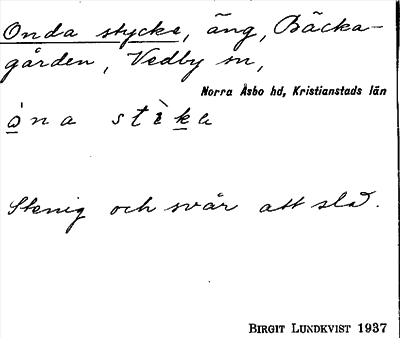 Onda stycke, äng, Bäcka-
gården, Vedby sn,
Norra Åsbo hd, Kristianstads län
ona stìke
Stenig och svår att slå.
BIRGIT LUNDKVIST 1937